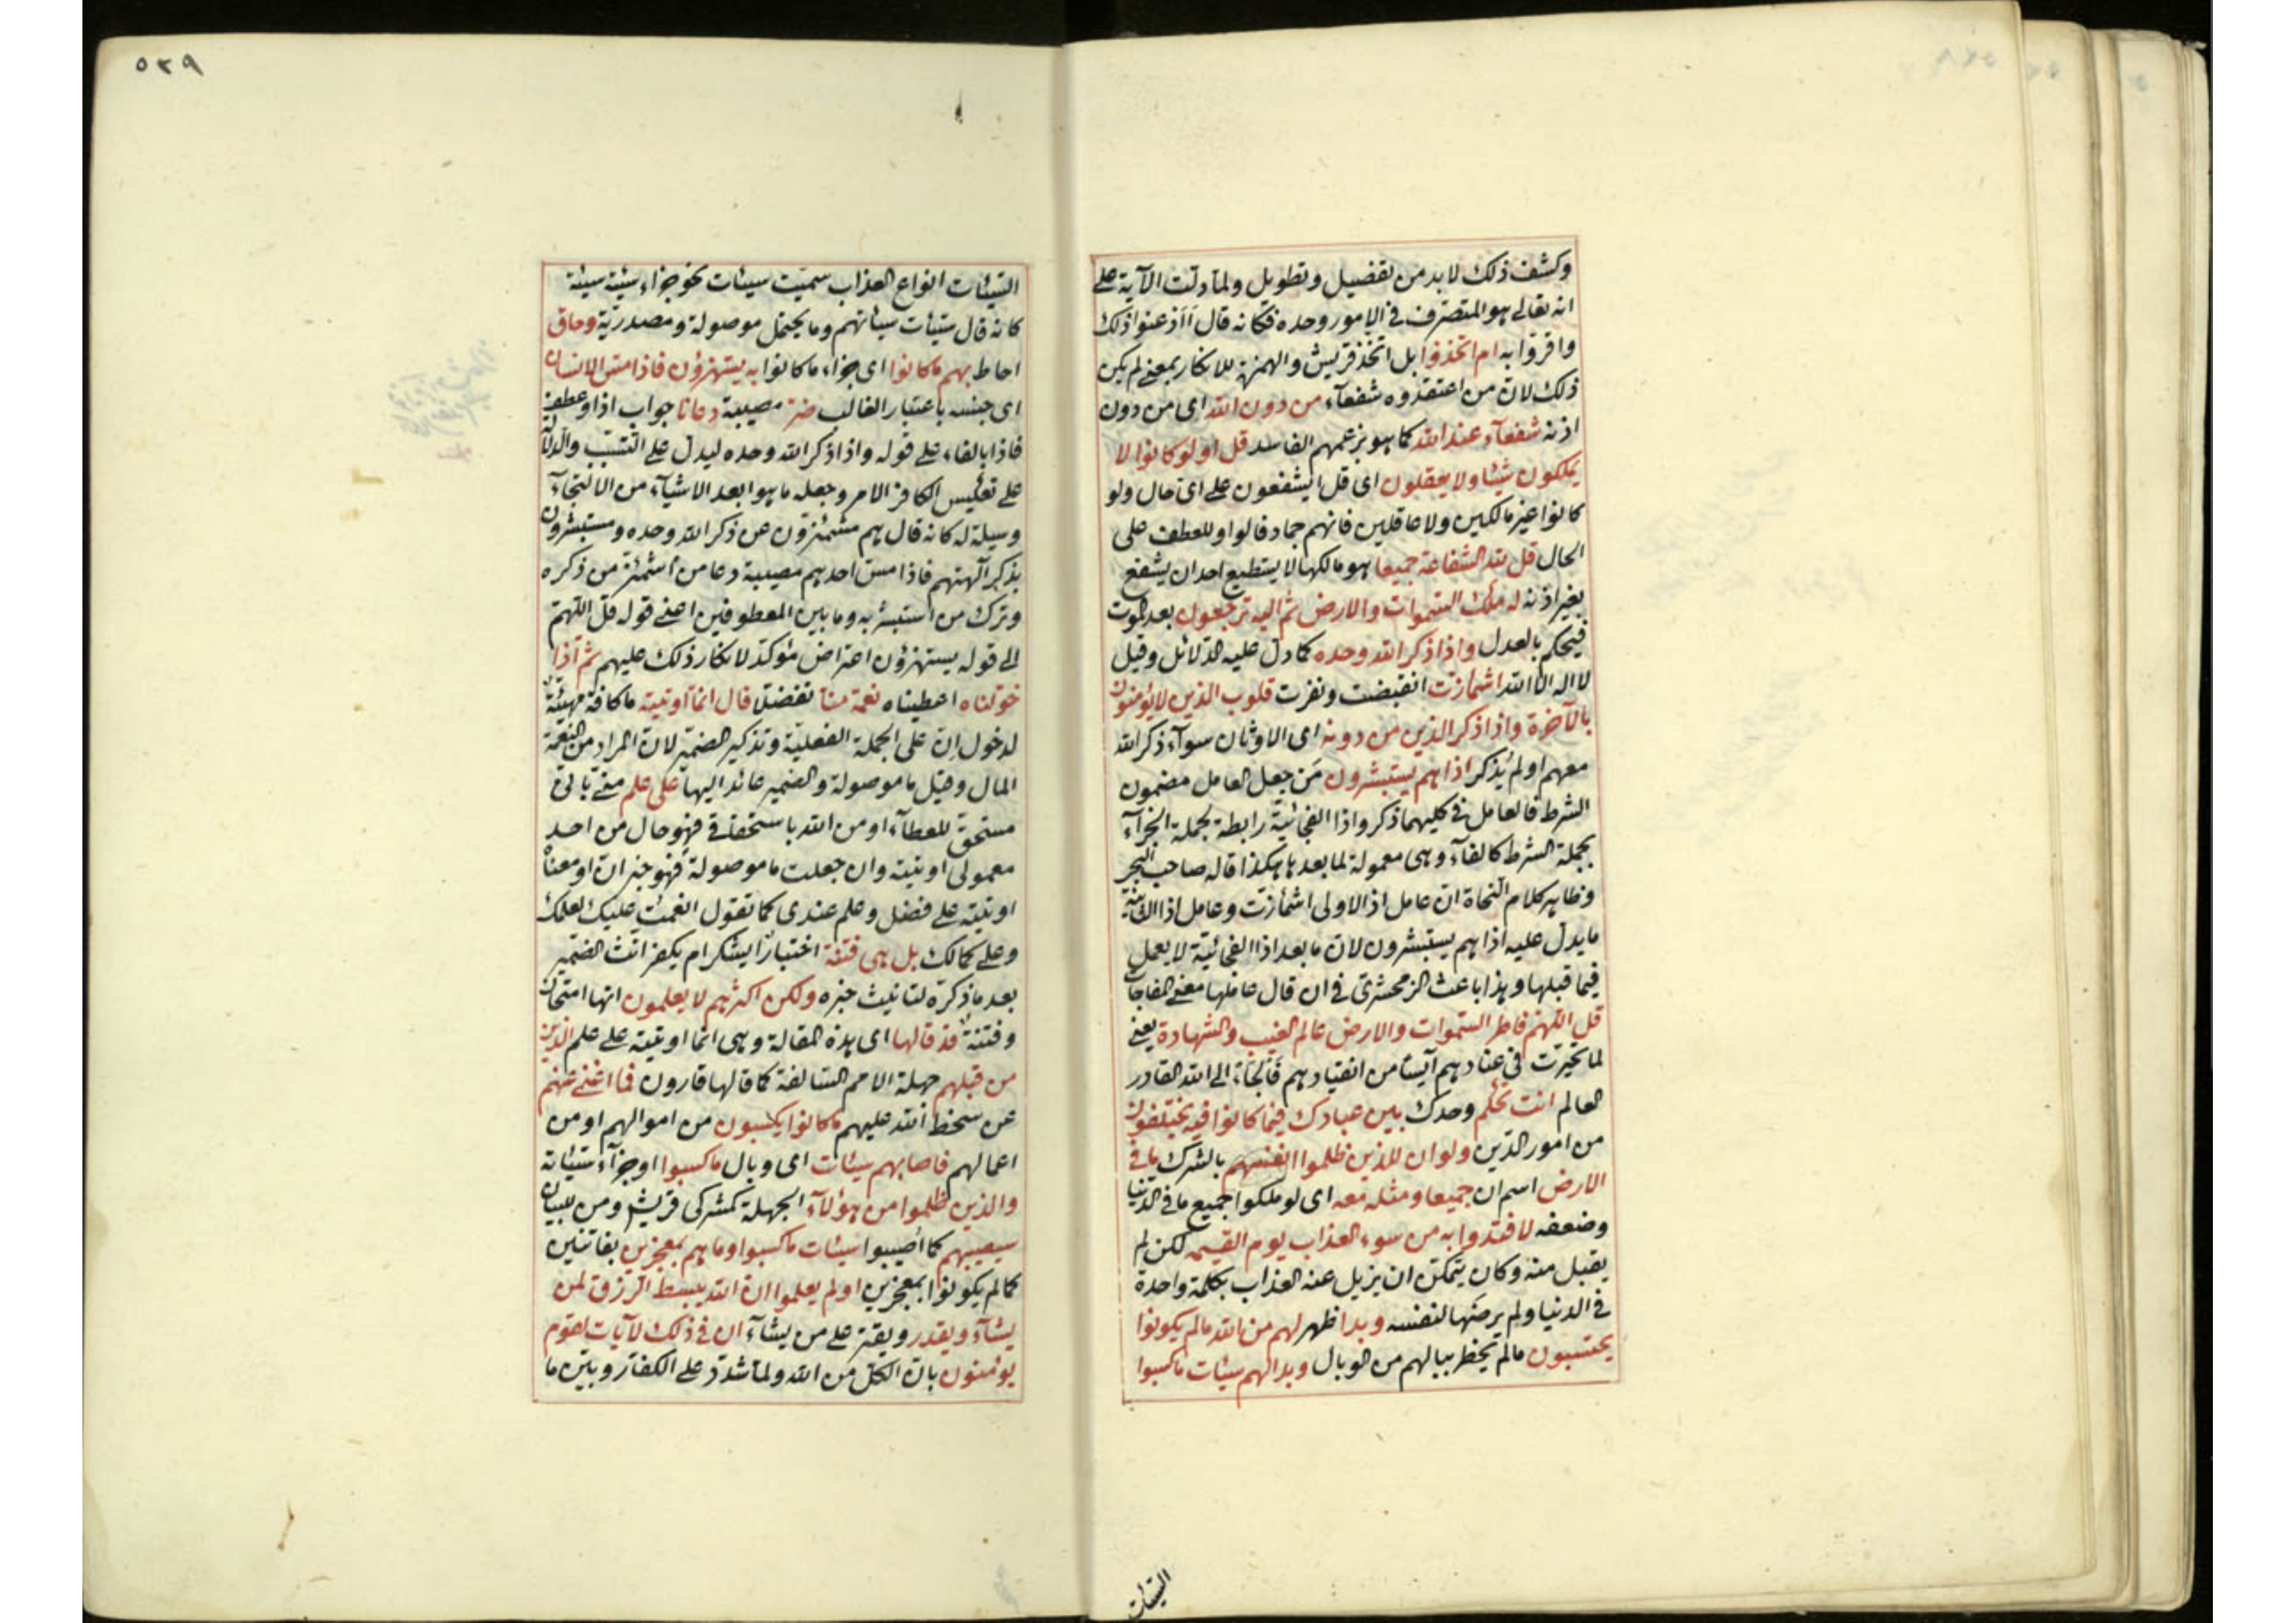 وكشف ذلك لا بد من تفصيل وتطويل ولما دلت الآية على
انه تعالى هو المتصرف في الامور وحده فكانه قال أأذعنوا ذلك
واقروا به ام اتخذوا بل اتخذ قريش والهمزة للانكار بمعنى لم يكن
ذلك لان من اعتقدوه شفعاء من دون الله اى من دون
اذنه شفعآء عند الله كما هو بزعمهم الفاسد قل اولو كانوا لا
يملكون شيئا ولا يعقلون اى قل ايشفعون على اى حال ولو
كانوا غير مالكين ولا عاقلين فانهم جماد قالوا وللعطف على
الحال قل لله الشفاعة جميعا هو مالكها لا يستطيع احد ان يشفع
بغير اذنه له ملك السموات والارض ثم اليه ترجعون بعد الموت
فيحكم بالعدل واذا ذكر الله وحده كما دل عليه الدلائل وقيل
لا اله الا الله اشمأزت انقبضت ونفرت قلوب الذين لا يؤمنون
بالآخرة واذا ذكر الذين من دونه اى الاوثان سوآء ذكر الله
معهم او لم يذكر اذا هم يستبشرون من جعل العامل مضمون
الشرط فالعامل في كليهما ذكر واذا الفجائية رابطة لجملة الجزآء
بجملة الشرط كالفآء وهى معمولة لما بعدها هكذا قاله صاحب البحر
وظاهر كلام النحاة ان عامل اذ الاولى اشمأزت وعامل اذا الثانية
ما يدل عليه اذا هم يستبشرون لان ما بعد اذا الفجائية لا يعمل
فيما قبلها وهذا باعث الزمحشرى في ان قال عاملها معنى المفاجات
قل اللهم فاطر السموات والارض عالم الغيب والشهادة يعنى
لما تحيرت في عنادهم آيسا من انقيادهم فالجأ الى الله القادر
العالم انت تحكم وحدك بين عبادك فيما كانوا فيه يختلفون
من امور الدين ولو ان للذين ظلموا انفسهم بالشرك ما في
الارض اسم ان جميعا ومثله معه اى لو ملكوا جميع ما في الدنيا
وضعفه لافتدوا به من سوء العذاب يوم القيمة لكن لم
يقبل منه وكان يتمكن ان يزيل عنه العذاب بكلمة واحدة
في الدنيا ولم يرضها لنفسه وبدا ظهر لهم من الله ما لم يكونوا
يحتسبون مالم يخطر ببالهم من الوبال وبدا لهم سيئات ما كسبوا
السيئات
٥٢٩
السيئات انواع العذاب سميت سيئات نحو جزاء سيئة سيئة
كانه قال سيئات سيئاتهم وما يحتمل موصولة ومصدرية وحاق
احاط بهم ما كانوا اى جزاء ما كانوا به يستهزؤن فاذا مس الانسان
اى جنسه باعتبار الغالب ضر مصيبة دعانا جواب اذا وعطف
فاذا بالفاء على قوله واذا ذكر الله وحده ليدل على التسبب والدلالة
على تعكيس الكافر الامر وجعله ما هو ابعد الاشيآء من الالتجآء
وسيلة له كانه قال هم مشمئزون عن ذكر الله وحده ومستبشرون
بذكر آلهتهم فاذا مس احدهم مصيبة دعا من اشمئز من ذكره
وترك من استبشر به وما بين المعطوفين اعنى قوله قل اللهم
الى قوله يستهزؤن اعتراض مؤكد لانكار ذلك عليهم ثم اذا
خولناه اعطيناه نعمة منا تفضلا قال انما اوتيته ما كافة مهيئة
لدخول ان على الجملة الفعلية وتذكير الضمير لان المراد من النعمة
المال وقيل ما موصولة والضمير عائد اليها على علم منى بانى
مستحق للعطآء او من الله باستحقاقى فهو حال من احد
معمولى اوتيته وان جعلت ما موصولة فهو خبر ان او معناه
اوتيته على فضل وعلم عندى كما تقول انعمت عليك لعلمك
وعلى كمالك بل هى فتنة اختبارا ايشكر ام يكفر انث الضمير
بعد ما ذكره لتانيث خبره ولكن اكثرهم لا يعلمون انها امتحان
وفتنة قد قالها اى هذه المقالة وهى انما اوتيته على علم الذين
من قبلهم جهلة الامم السالفة كما قالها قارون فما اغنى عنهم
عن سخط الله عليهم ما كانوا يكسبون من اموالهم او من
اعمالهم فاصابهم سيئات اى وبال ما كسبوا او جزآء سيئاته
والذين ظلموا من هؤلآء الجهلة كمشركى قريش ومن للبيان
سيصيبهم كما اصيبوا سيئات ما كسبوا وما هم بمعجزين بفائتين
كما لم يكونوا بمعجزين اولم يعلموا ان الله يبسط الرزق لمن
يشآء ويقدر ويقتر على من يشآء ان في ذلك لآيات لقوم
يؤمنون بان الكل من الله ولما شدد على الكفار وبين ما